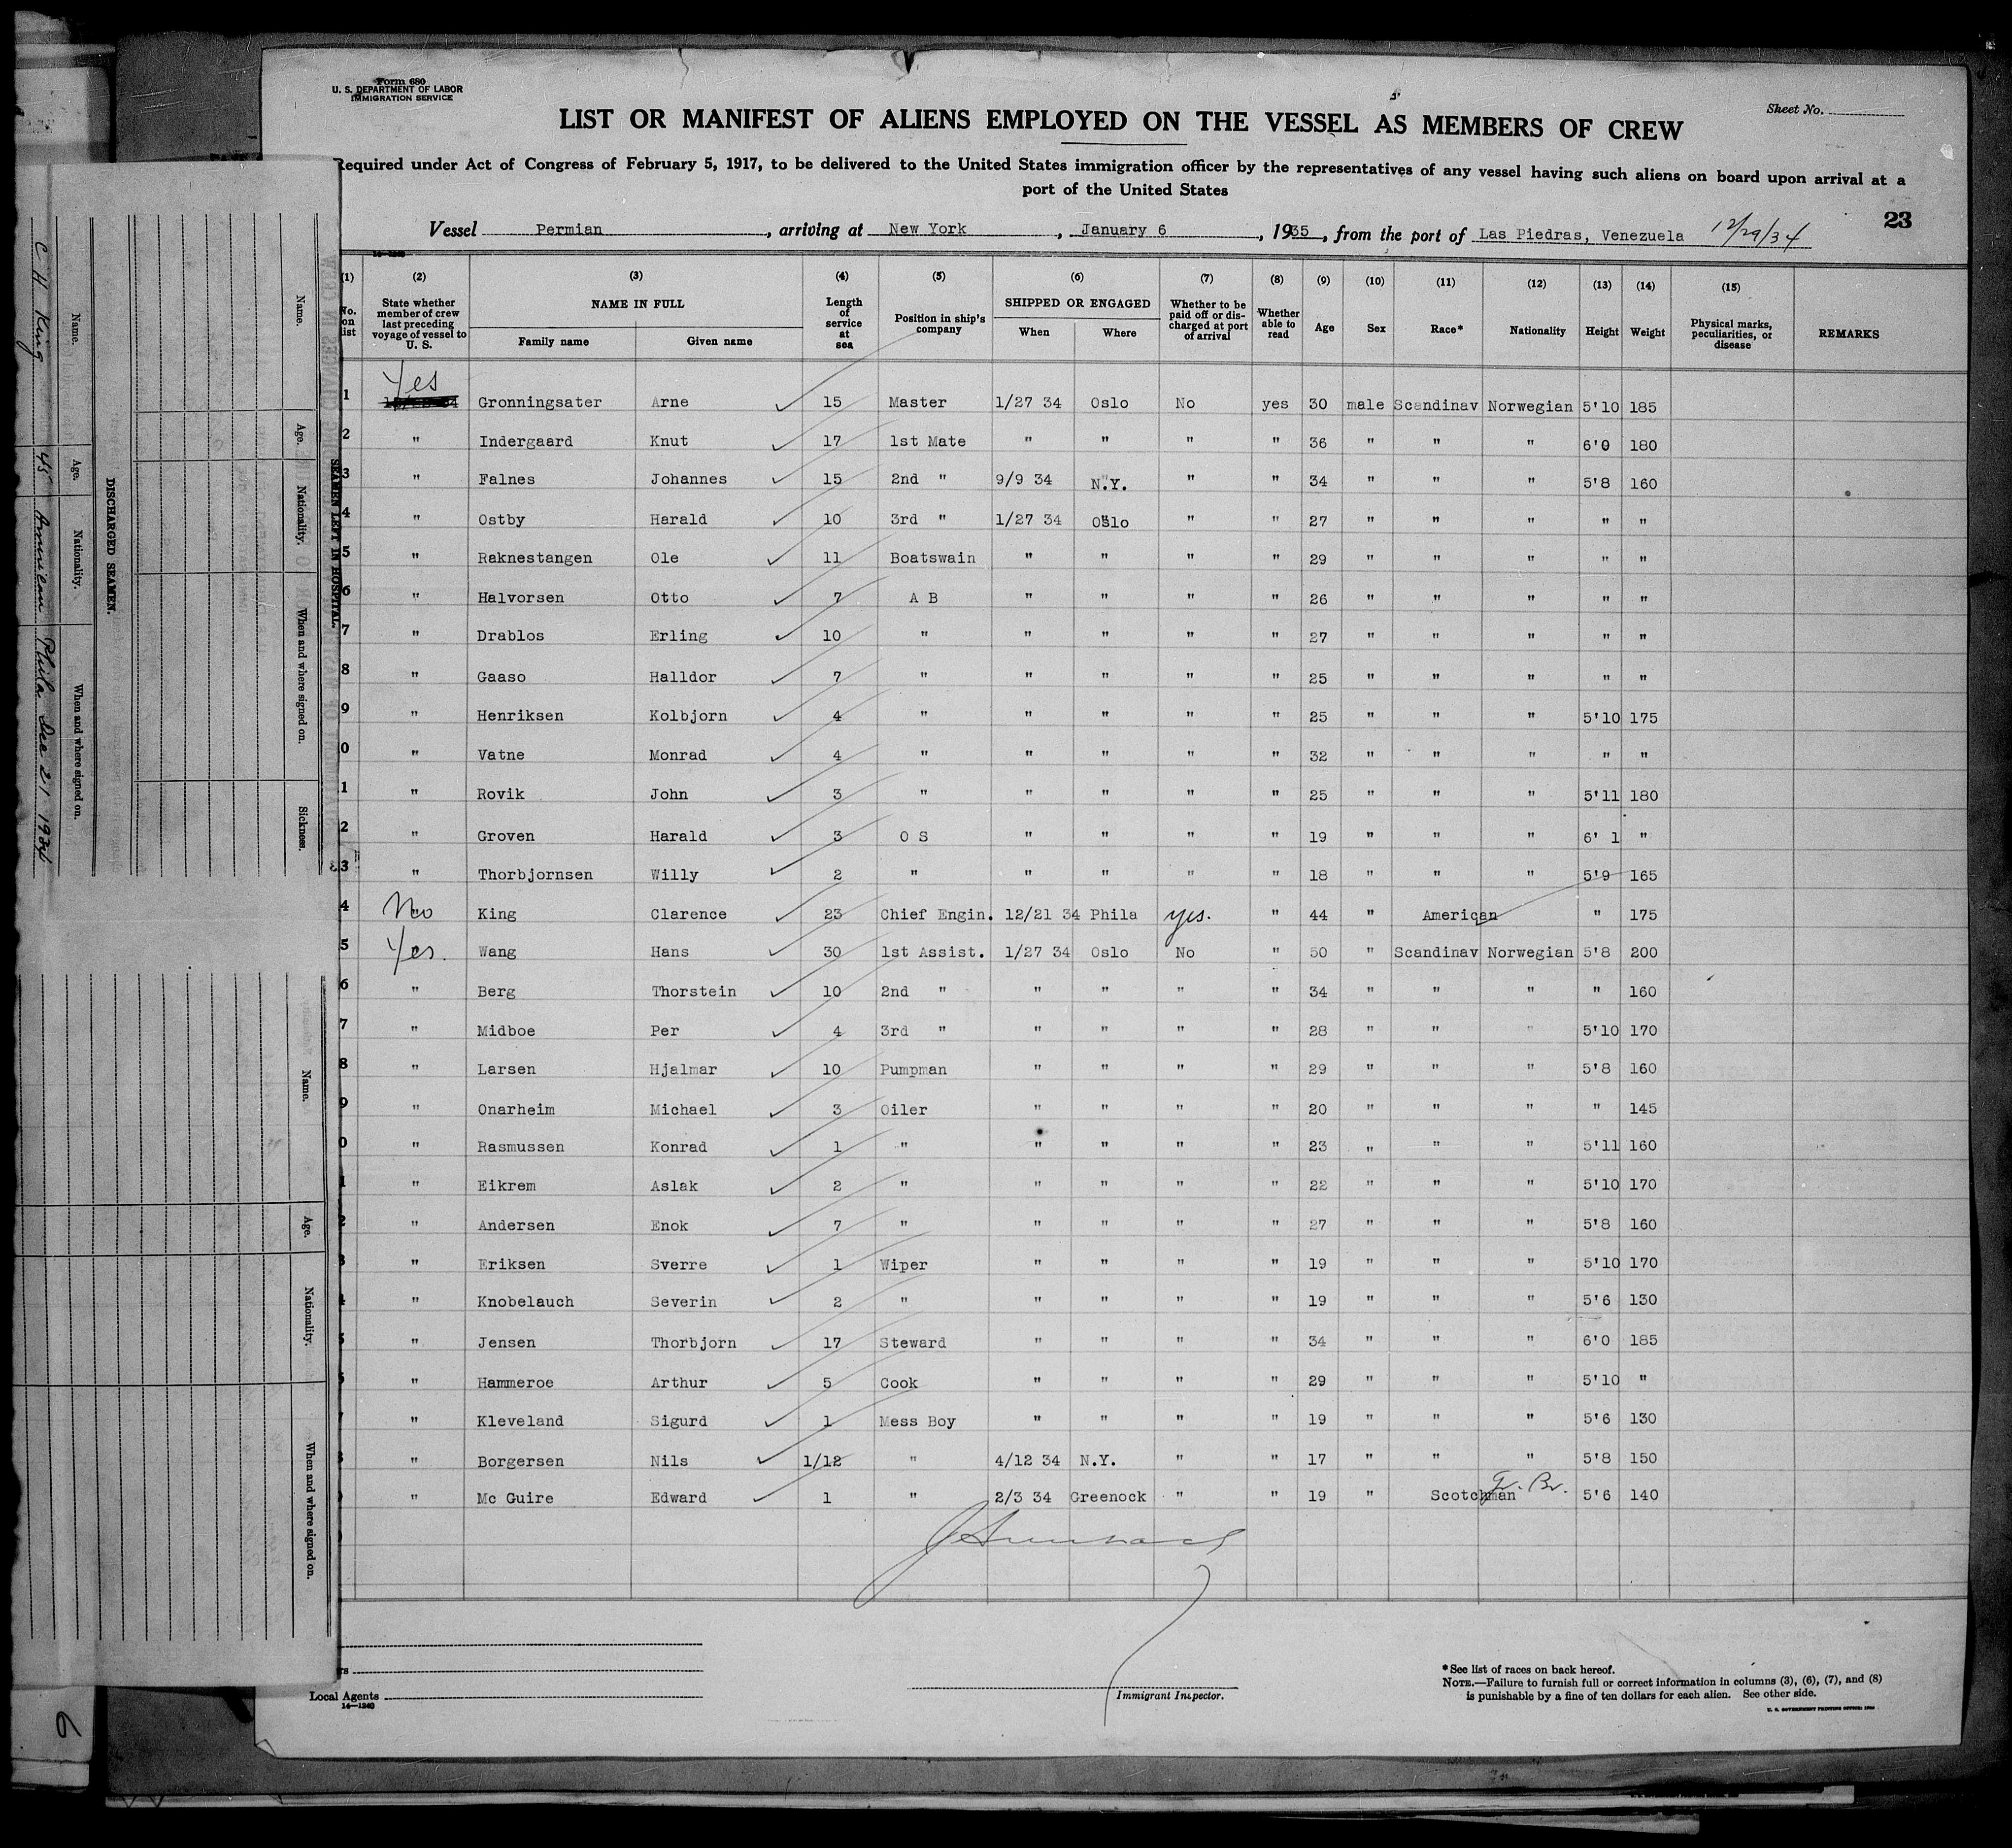 Form 680
U. S. DEPARTMENT OF LABOR
IMMIGRATION SERVICE
Sheet No.
LIST OR MANIFEST OF ALIENS EMPLOYED ON THE VESSEL AS MEMBERS OF CREW
Required under Act of Congress of February 5, 1917, to be delivered to the United States immigration officer by the representatives of any vessel having such aliens on board upon arrival at a
port of the United States
23
Vessel Permian, arriving at New York, January 6, 1935, from the port of Las Piedras, Venezuela 12/29/34
(1) (2) (3) (4) (5) (6) (7) (8) (9) (10) (11) (12) (13) (14) (15)
No. on list
State whether member of crew last preceding voyage of vessel to U. S.
NAME IN FULL
Family name Given name
Length of service at sea
Position in ship's company
SHIPPED OR ENGAGED
When Where
Whether to be paid off or discharged at port of arrival
Whether able to read
Age Sex Race* Nationality Height Weight
Physical marks, peculiarities, or disease
REMARKS
1 Yes Gronningsater Arne 15 Master 1/27 34 Oslo No yes 30 male Scandinav Norwegian 5'10 185
2 " Indergaard Knut 17 1st Mate " " " " 36 " " " 6'0 180
3 " Falnes Johannes 15 2nd " 9/9 34 N.Y. " " 34 " " " 5'8 160
4 " Ostby Harald 10 3rd " 1/27 34 Oslo " " 27 " " " " "
5 " Raknestangen Ole 11 Boatswain " " " " 29 " " " " "
6 " Halvorsen Otto 7 A B " " " " 26 " " " " "
7 " Drablos Erling 10 " " " " " 27 " " " " "
8 " Gaaso Halldor 7 " " " " " 25 " " " " "
9 " Henriksen Kolbjorn 4 " " " " " 25 " " " 5'10 175
0 " Vatne Monrad 4 " " " " " 32 " " " " "
1 " Rovik John 3 " " " " " 25 " " " 5'11 180
2 " Groven Harald 3 O S " " " " 19 " " " 6' 1 "
3 " Thorbjornsen Willy 2 " " " " " 18 " " " 5'9 165
4 No King Clarence 23 Chief Engin. 12/21 34 Phila yes. " 44 " American " 175
5 Yes. Wang Hans 30 1st Assist. 1/27 34 Oslo No " 50 " Scandinav Norwegian 5'8 200
6 " Berg Thorstein 10 2nd " " " " " 34 " " " " 160
7 " Midboe Per 4 3rd " " " " " 28 " " " 5'10 170
8 " Larsen Hjalmar 10 Pumpman " " " " 29 " " " 5'8 160
9 " Onarheim Michael 3 Oiler " " " " 20 " " " " 145
0 " Rasmussen Konrad 1 " " " " " 23 " " " 5'11 160
1 " Eikrem Aslak 2 " " " " " 22 " " " 5'10 170
2 " Andersen Enok 7 " " " " " 27 " " " 5'8 160
3 " Eriksen Sverre 1 Wiper " " " " 19 " " " 5'10 170
4 " Knobelauch Severin 2 " " " " " 19 " " " 5'6 130
5 " Jensen Thorbjorn 17 Steward " " " " 34 " " " 6'0 185
6 " Hammeroe Arthur 5 Cook " " " " 29 " " " 5'10 "
7 " Kleveland Sigurd 1 Mess Boy " " " " 19 " " " 5'6 130
8 " Borgersen Nils 1/12 " 4/12 34 N.Y. " " 17 " " " 5'8 150
" Mc Guire Edward 1 " 2/3 34 Greenock " " 19 " Scotchman Gr. Br. 5'6 140
Local Agents
14—1240
Immigrant Inspector.
*See list of races on back hereof.
NOTE.—Failure to furnish full or correct information in columns (3), (6), (7), and (8)
is punishable by a fine of ten dollars for each alien. See other side.
U. S. GOVERNMENT PRINTING OFFICE
SEAMEN LEFT IN HOSPITAL.
Name. Age. Nationality. When and where signed on. Sickness.
DISCHARGED SEAMEN.
Name. Age. Nationality. When and where signed on.
C H King 45 American Phila Dec 21 1934
Name. Age. Nationality. When and where signed on.
6